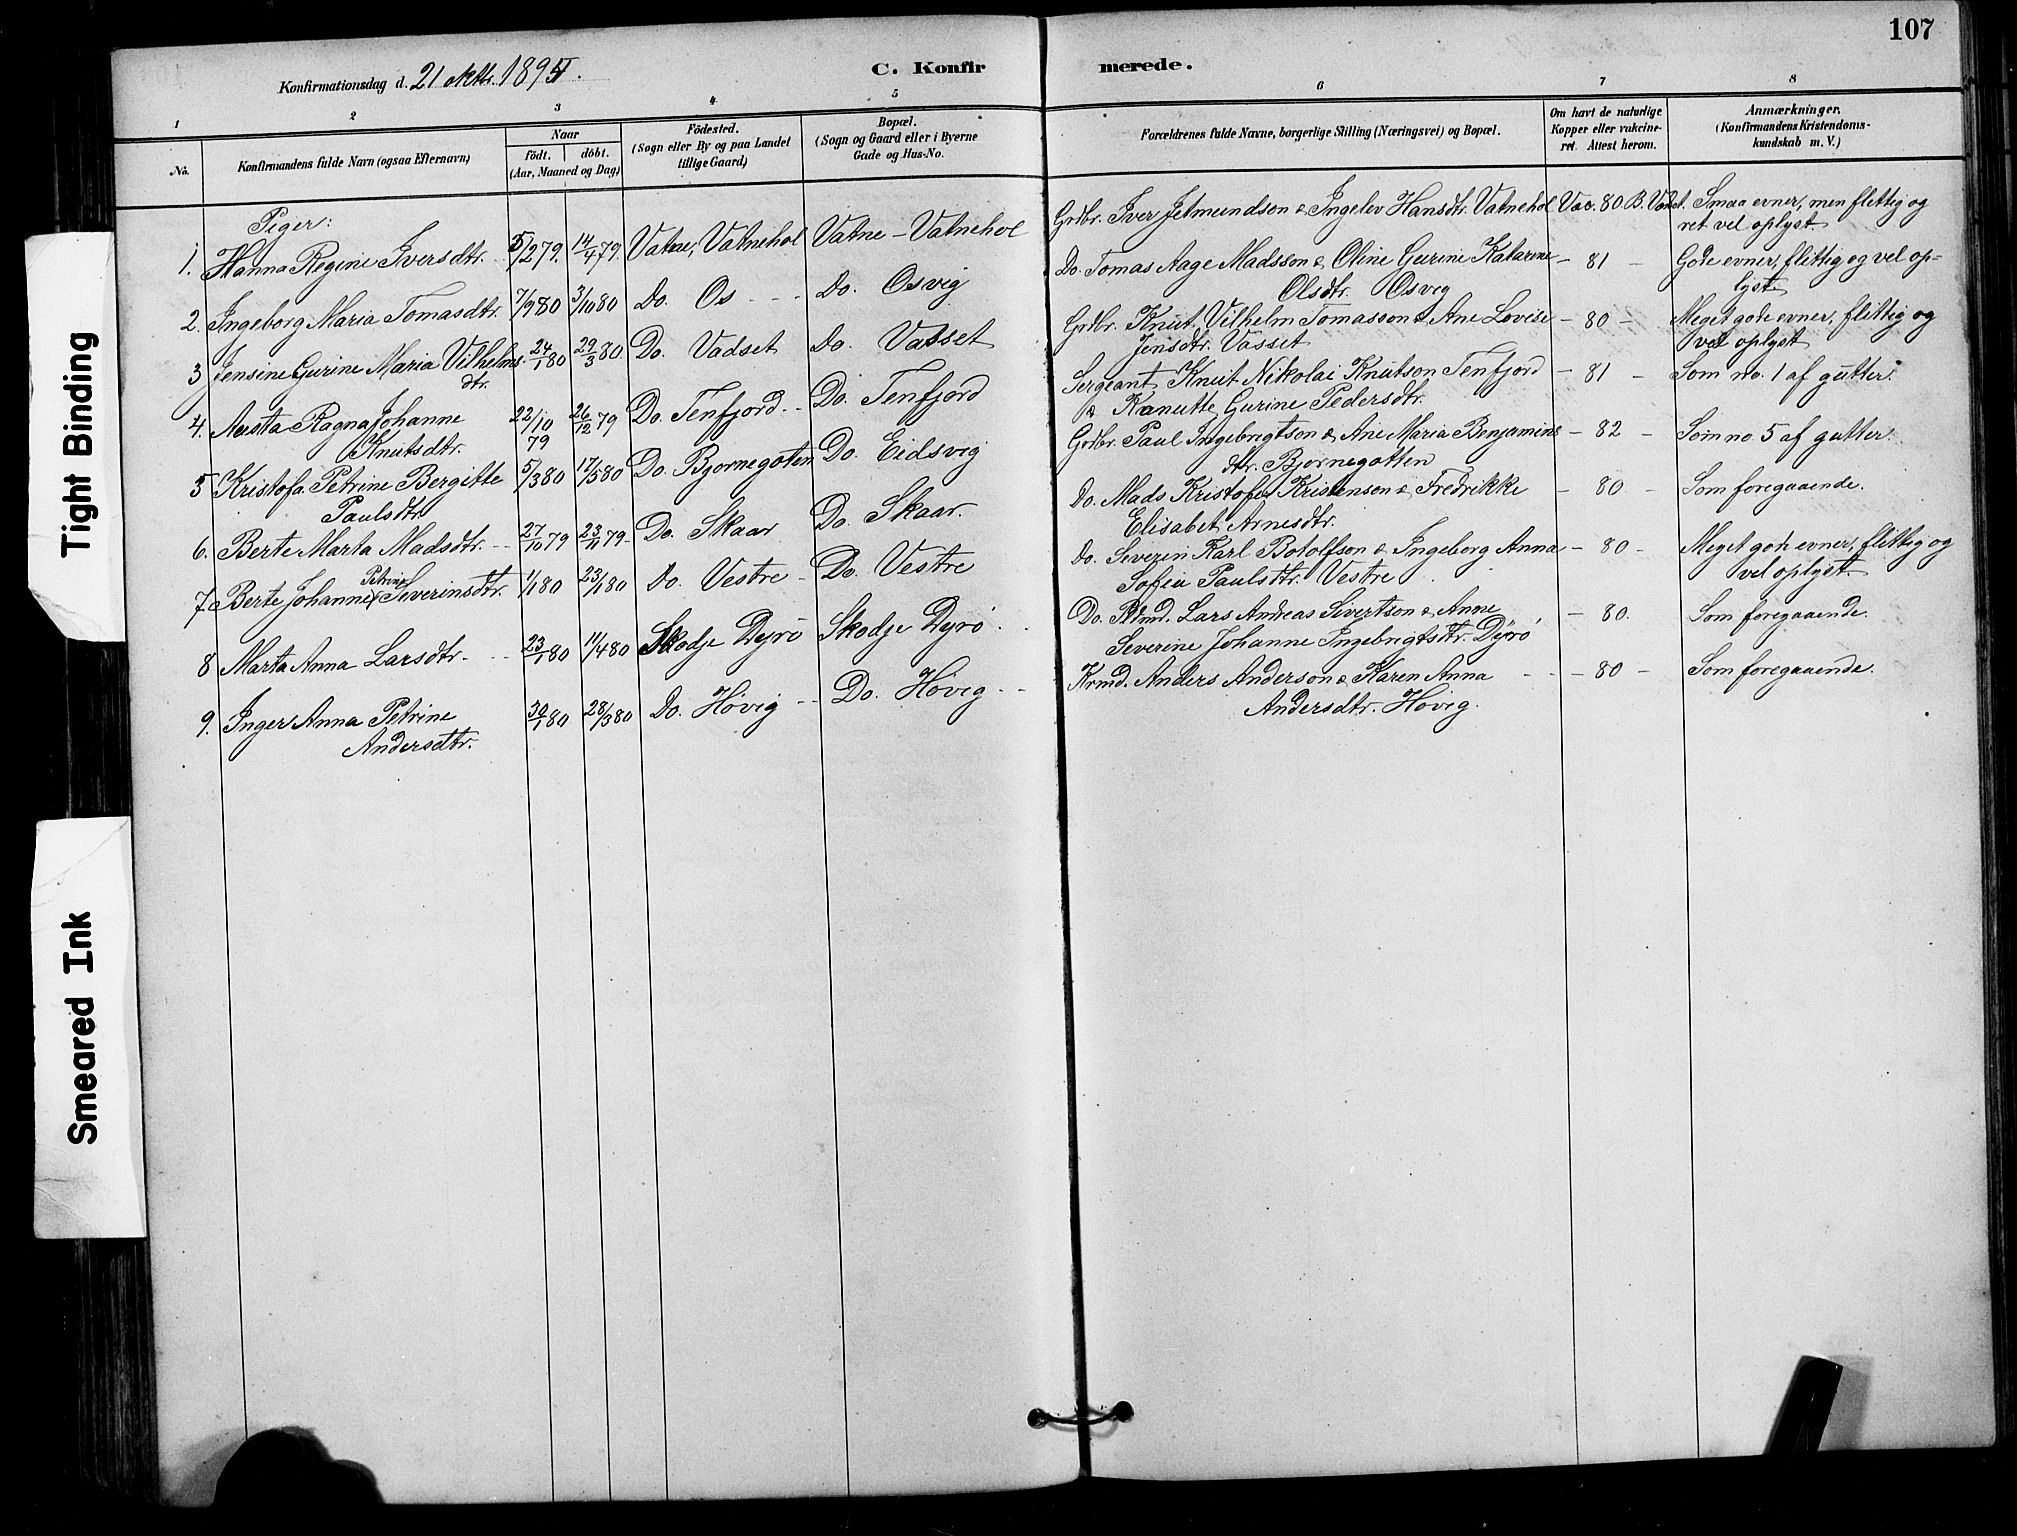 107
Konfirmationsdag d. 21 oktbr. 1894.
C. Konfirmerede.
1 2 3 4 5 6 7 8
No.
Konfirmandens fulde Navn (ogsaa Efternavn)
Naar
födt. döbt.
(Aar, Maaned og Dag)
Födested.
(Sogn eller By og paa Landet
tillige Gaard)
Bopæl.
(Sogn og Gaard eller i Byerne
Gade og Hus-No.
Forældrenes fulde Navne, borgerlige Stilling (Næringsvei) og Bopæl.
Om havt de naturlige
Kopper eller vakcine-
ret. Attest herom.
Anmærkninger.
(Konfirmandens Kristendoms-
kundskab m. V.)
Piger:
1. Hanna Regine Iversdtr. 5/2 79. 14/4 79. Vatne, Vatnehol Vatne - Vatnehol Grdbr. Iver Jetmundson & Ingelev Hansdtr. Vatnehol Vac. 80. B. Smaa evner, men flittig og
ret vel oplyst.
2. Ingeborg Maria Tomasdtr. 7/9 80 3/10 80 Do. Os - - - Do. Osvig Do. Tomas Aage Madsson & Oline Gurine Katarine - 81 - Gode evner, flittig og vel op-
Olsdtr. Osvig lyst.
3 Jensine Gurine Maria Vilhelms- 24/1 80 29/3 80. Do. Vadset Do. Vasset Grdbr. Knut Vilhelm Tomasson & Ane Lovise - 80 - Meget gode evner, flittig og
dtr. Jensdtr. Vasset vel oplyst
4. Austa Ragna Johanne 22/10 79 26/12 79 Do. Tenfjord - - Do. Tenfjord Sergeant Knut Nikolai Knutson Tenfjord - 81 - Som no. 1 af gutter.
Knutsdtr. & Kanutte Gurine Pedersdtr.
5 Kristofa Petrine Bergitte 5/3 80 17/5 80 Do. Bjornegoten Do. Eidsvig Grdbr. Paul Ingebregtson & Ane Maria Benjamins - 82 - Som no 5 af gutter.
Paulsdtr. dtr. Bjørnegotten
6. Berte Marta Madsdtr. - - 27/10 79 23/11 79 - Do. Skaar Do. Skaar. Do. Mads Kristofer Kristenson & Fredrikke - 80 - Som foregaaende.
Elisabet Arnesdtr.
7. Berte Johanne Petrine Severinsdtr. 1/1 80 23/1 80 Do. Vestre - Do. Vestre Do. Severin Karl Botolfson & Ingeborg Anna - 80 - Meget gode evner, flittig og
Sofie Paulsdtr. Vestre vel oplyst.
8 Marta Anna Larsdtr. - - 23/1 80 11/4 80 Skodje Dyrö Skodje Dyrö. Do. Lars Andreas Sivertson & Anne - 80. Som foregaaende.
Severine Johanne Ingebrigtsdtr. Dyrö
9. Inger Anna Petrine 30/1 80 28/3 80 Do. Hövig - - Do. Hövig - - Krmd. Anders Anderson & Karen Anna - - - 80 - Som foregaaende.
Andersdtr. Andersdtr. Hövig.
Tight Binding
Smeared Ink